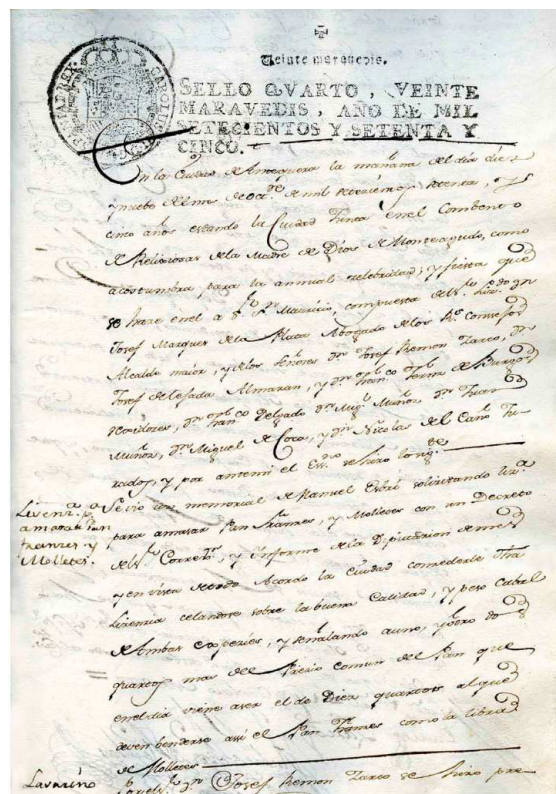 Veinte maravedis.
SELLO QVARTO, VEINTE
MARAVEDIS, AÑO DE MIL
SETECIENTOS Y SETENTA Y
CINCO.
En la Ciudad de Antequera la mañana del dia diez
y nuebe del mes de de mil setecientos setenta, y
cinco años estando la Ciudad Junta en el Combento
de Religiosas de la Madre de Dios de Monteagudo, como
acostumbra para la annual celebridad, y fiesta que
se hace en el a Sr Sn Mauricio, compuesta del Sr
Josef Marques de la Plata Abogado de los Rs Consejos
Alcalde maior, y de los Señores Dn Josef Remon Zarco, Dn
Josef de Tejada Almaran, y Dn de Burgos
Rexidores, Dn Delgado Dn Migl Muñoz, Dn Juan
Muñoz, Dn Miguel de Coca, y Dn Nicolas del Ju
rados, y por ante mi el Essno se hizo lo sigte
Lizenza pa
amasar Pan
franzes y
Molletes.
Se vio un memorial de Manuel solizitando liza
para amasar Pan frames, y Molletes con un Decreto
del Sr Corregr, y Ynforme de la Diputazion de mes
y en vista de todo Acordo la Ciudad comcederle dha
lizenzia celandose sobre la buena Calidad, y peso Cabal
de Ambas especies, y señalando a uno, y otro dos
quartos mas del Prezio comun del Pan que
en el dia viene a ser el de Diez quartos al que
deven benderse assi el Pan frames como la libra
de Molletes
Lavarino
Josef Remon Zarco se hizo pre